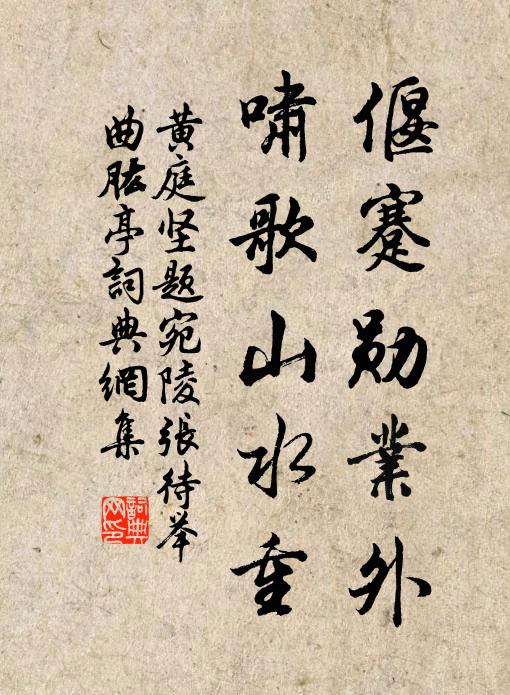 偃蹇勋業外
嘯歌山水重
黄庭坚題宛陵張待举
曲肱亭詞典網集
詞典
网印